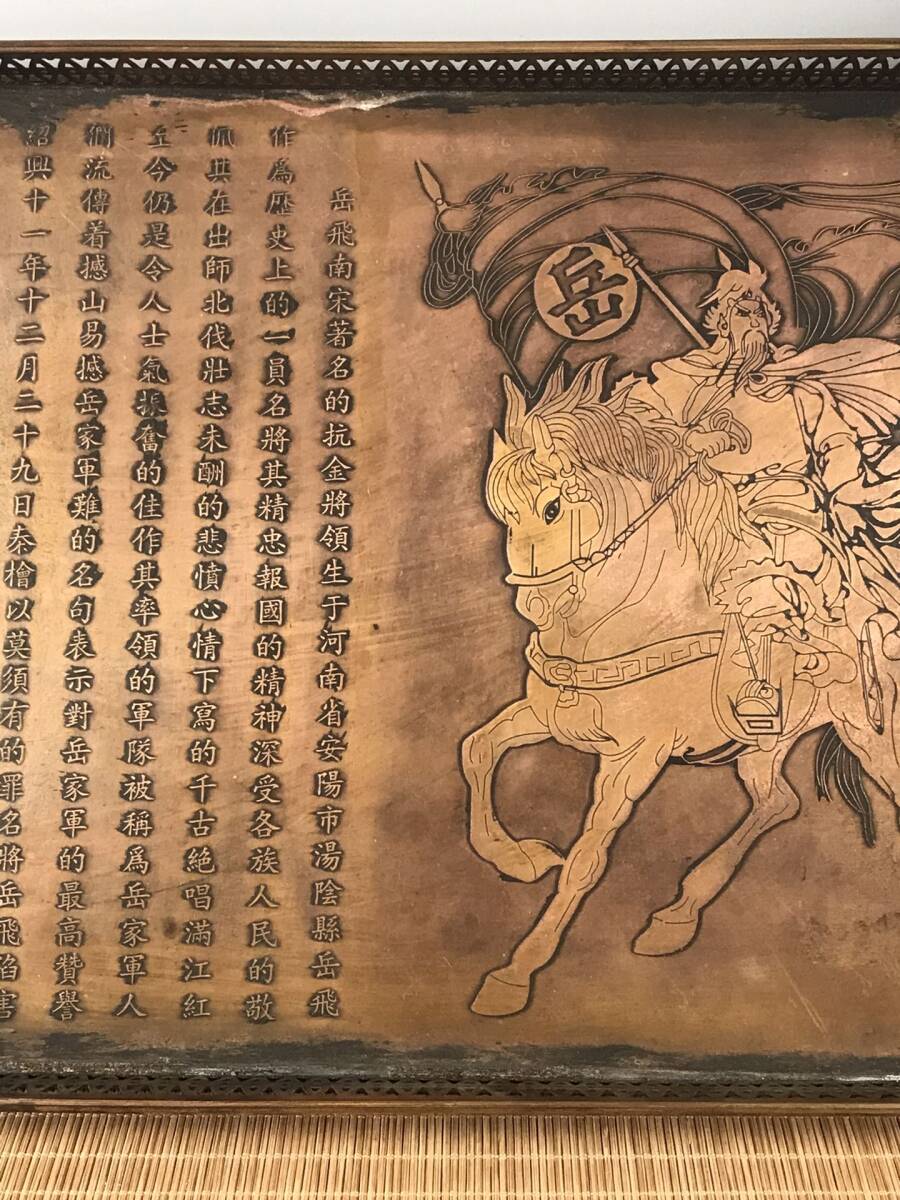 岳
岳飛南宋著名的抗金將領生于河南省安陽市湯陰縣岳飛
作爲歷史上的一員名將其精忠報國的精神深受各族人民的敬
佩其在出師北伐壯志未酬的悲憤心情下寫的千古絶唱滿江紅
至今仍是令人士氣振奮的佳作其率領的軍隊被稱爲岳家軍人
們流傳着撼山易撼岳家軍難的名句表示對岳家軍的最高贊譽
紹興十一年十二月二十九日秦檜以莫須有的罪名將岳飛陷害